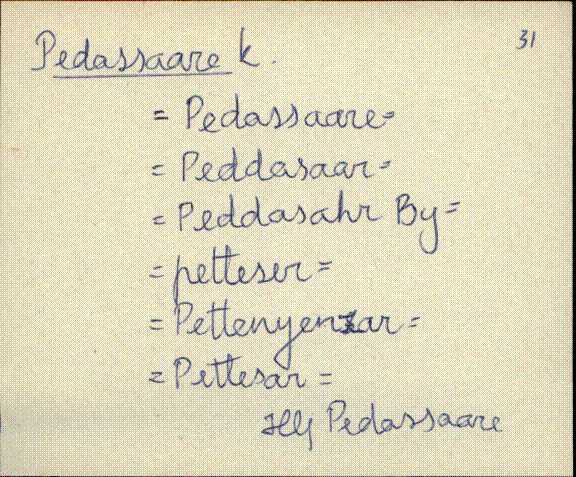 31
Pedassaare k.
= Pedassaare =
= Peddasaar =
= Peddasahr By =
= petteser =
= Pettenyenzar =
= Pettesar =
Pedassaare